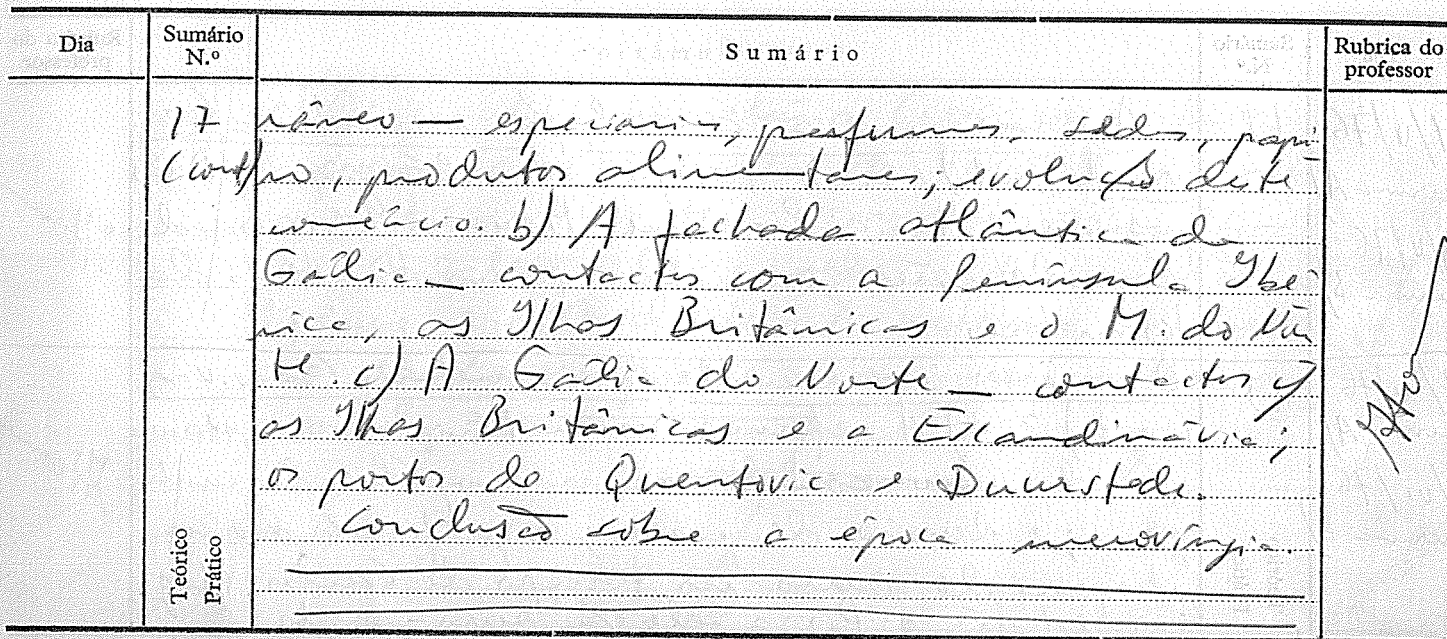 Dia
Sumário N.º
Sumário
Rubrica do professor
17 râneo — especiarias, perfumes, sedas, papi
(cont) ro, produtos alimentares; evolução deste
comércio. b) A fachada atlântica da
Gália — contactos com a Península Ibé
rica, as Ilhas Britânicas e o M. do Nor
te. c) A Gália do Norte — contactos c/
as Ilhas Britânicas e a Escandinávia;
os portos de Quentovic e Duurstede.
Conclusão sobre a época merovíngia.
Teórico
Prático